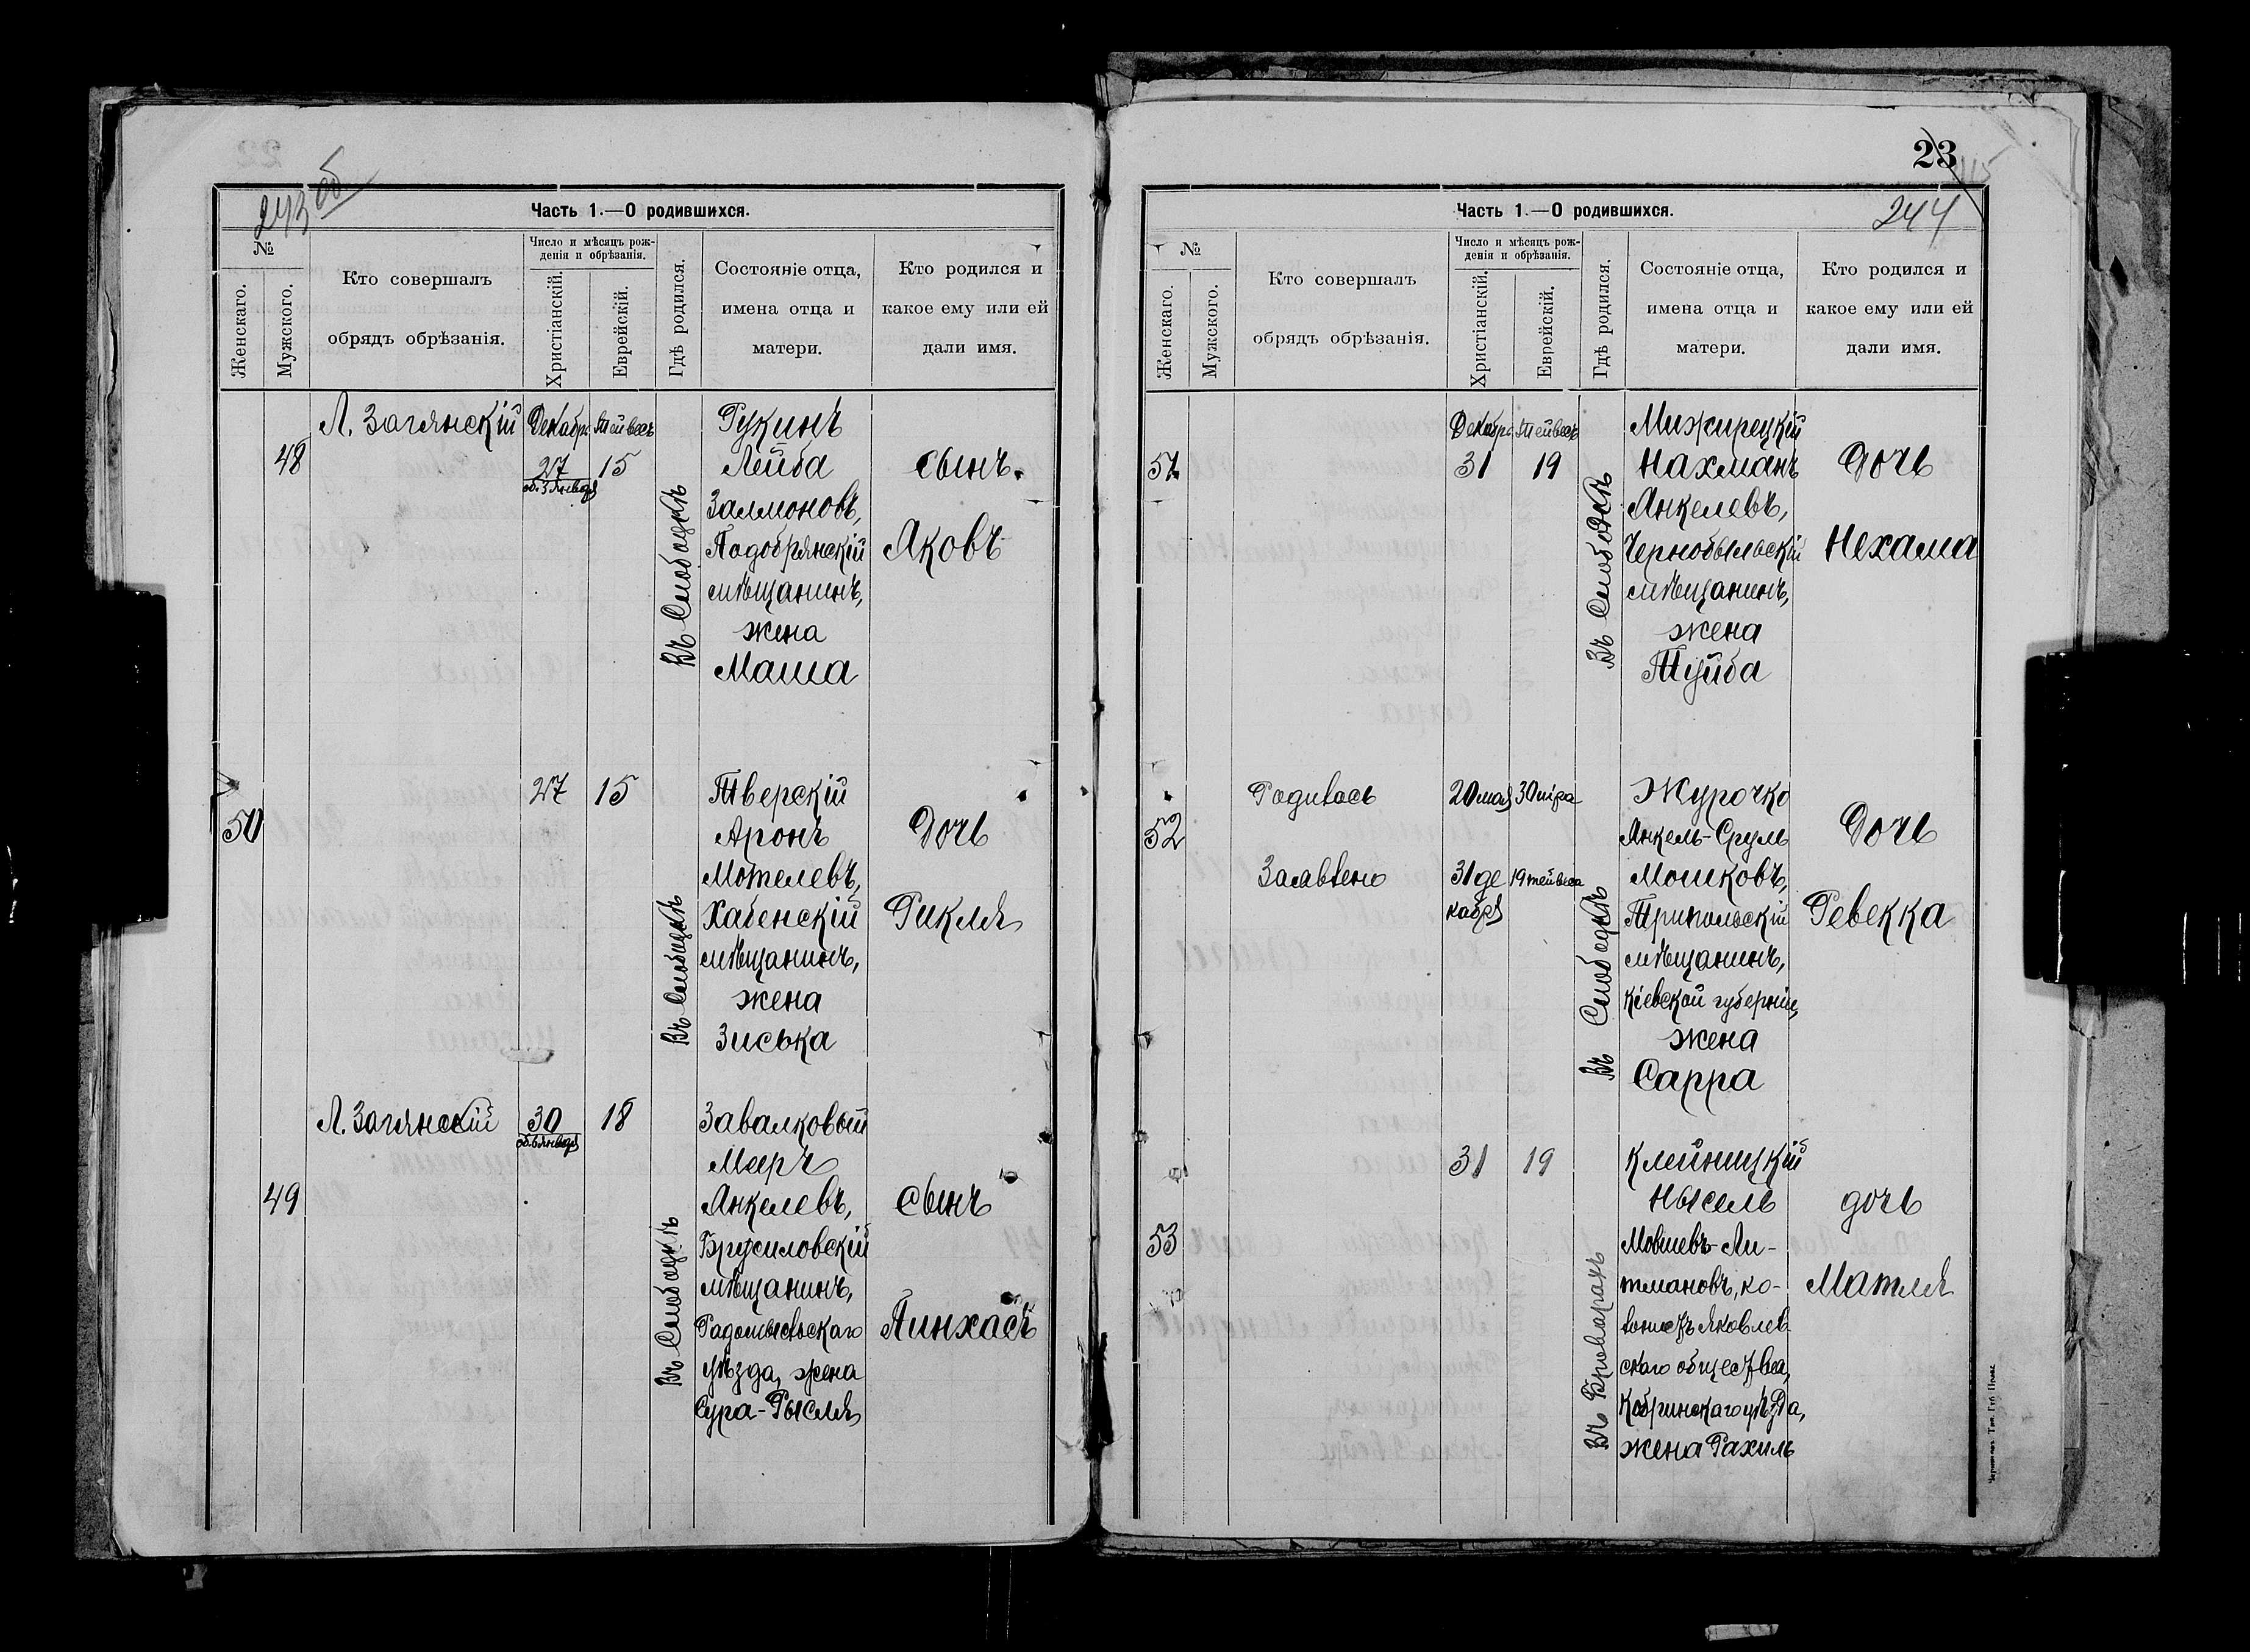 243 об
Часть 1.—О родившихся.
№
Женскаго.
Мужского.
Кто совершалъ
обрядъ обрѣзанія.
Число и мѣсяцъ рож-
денія и обрѣзанія.
Христіанскій.
Еврейскій.
Гдѣ родился.
Состояніе отца,
имена отца и
матери.
Кто родился и
какое ему или ей
дали имя.
48
Л. Заглянскій
Декабрь
27
об. 3 января
Тейвесъ
15
Въ Слободкѣ
Рукинъ
Лейба
Залмоновъ,
Подобрянскій
мѣщанинъ,
жена
Маша
сынъ.
Яковъ
50
27
15
Въ Слободкѣ
Тверскій
Аронъ
Мотелевъ,
Хабенскій
мѣщанинъ,
жена
Зиська
Дочь
Рикля
49
Л. Заглянскій
30
об. 6 января
18
Въ Слободкѣ
Завалковый
Мееръ
Янкелевъ,
Брусиловскій
мѣщанинъ,
Радомысльскаго
уѣзда, жена
Сура-Рысля
сынъ
Пинхасъ
23
115
244
Часть 1.—О родившихся.
№
Женскаго.
Мужского.
Кто совершалъ
обрядъ обрѣзанія.
Число и мѣсяцъ рож-
денія и обрѣзанія.
Христіанскій.
Еврейскій.
Гдѣ родился.
Состояніе отца,
имена отца и
матери.
Кто родился и
какое ему или ей
дали имя.
51
Декабрь
31
Тейвесъ
19
Въ Слободкѣ
Мижирецкій
Нахманъ
Янкелевъ,
Чернобыльскій
мѣщанинъ,
жена
Туйба
Дочь
Нехама
52
Родилась
20 мая
30 іира
Заявлено
31 де
кабря
19 тейвеса
Въ Слободкѣ
Журочко
Янкель-Сруль
Мошковъ,
Трипольскій
мѣщанинъ,
Кіевской губерніи,
жена
Сарра
Дочь
Ревекка
53
31
19
Въ Броварахъ
Клейницкій
Нысель
Мовшевъ-Ли-
тмановъ, ко-
лонистъ Яковлев-
скаго общества,
Кобринскаго уѣзда,
жена Рахиль
дочь
Матля